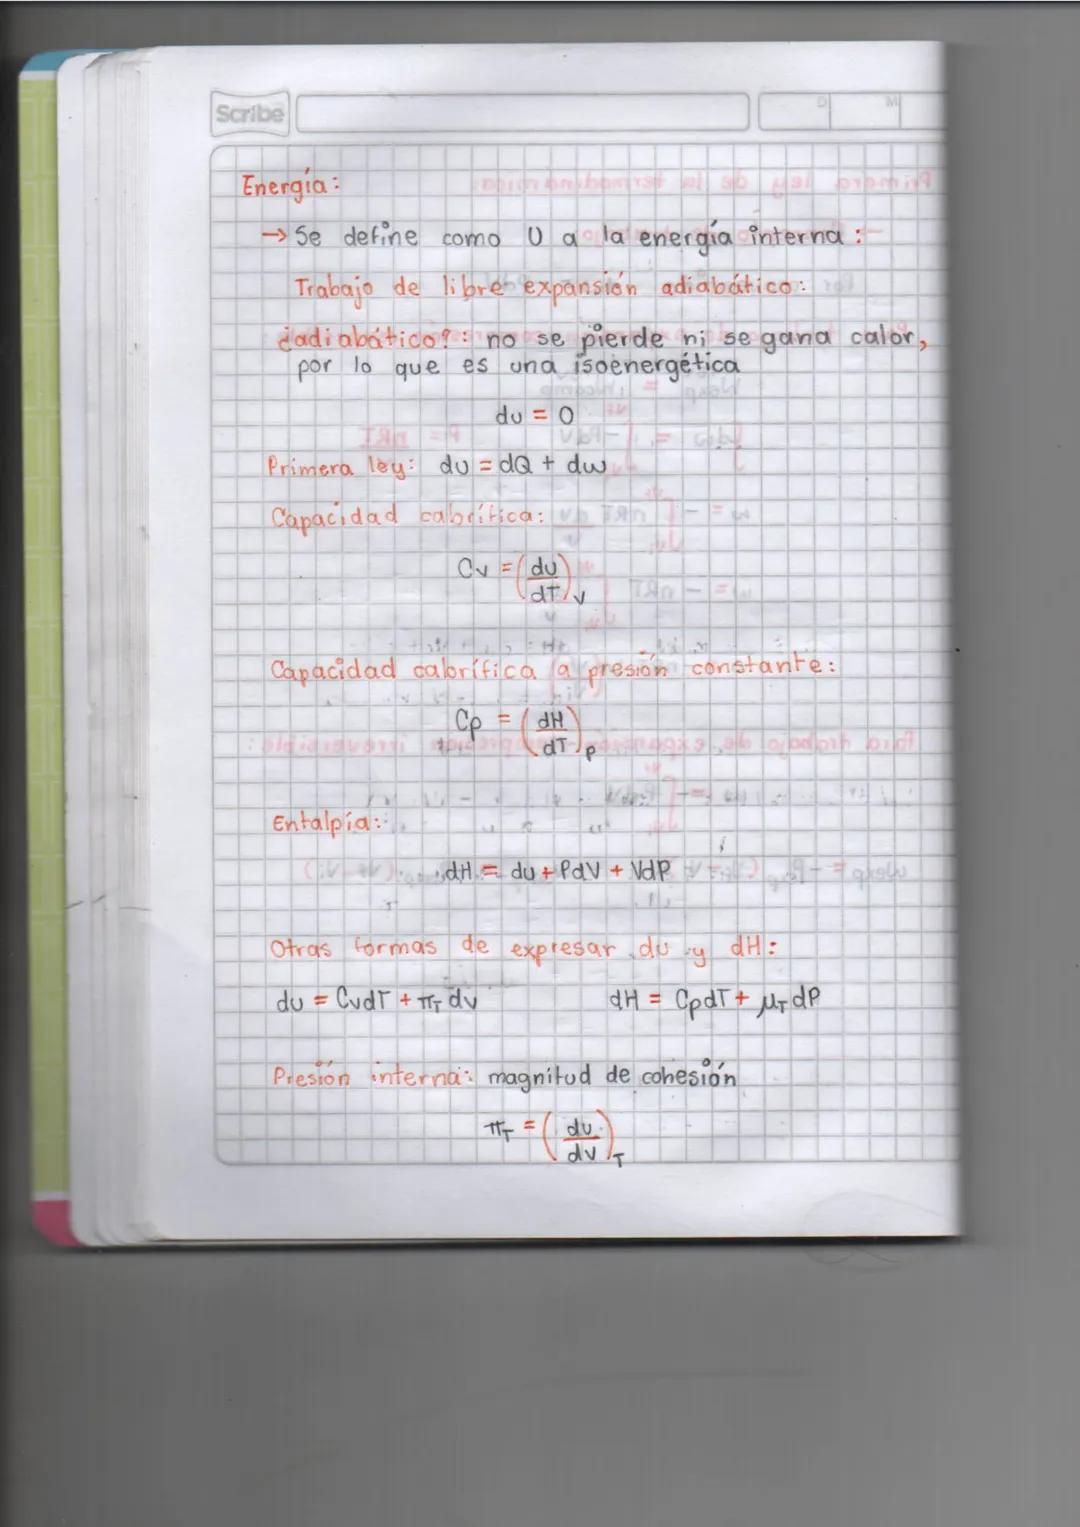 Scribe
D M
Energía:
→ Se define como U a la energía interna:
Trabajo de libre expansión adiabático:
¿adiabático?: no se pierde ni se gana calor,
por lo que es una isoenergética
du = 0
Primera ley: du = dQ + dw
Capacidad calorífica:
Cv = (du/dT)v
Capacidad calorífica a presión constante:
Cp = (dH/dT)p
Entalpía:
dH = du + PdV + VdP
Otras formas de expresar du y dH:
du = CvdT + πT dv dH = CpdT + μT dP
Presión interna: magnitud de cohesión
πT = (du/dv)T